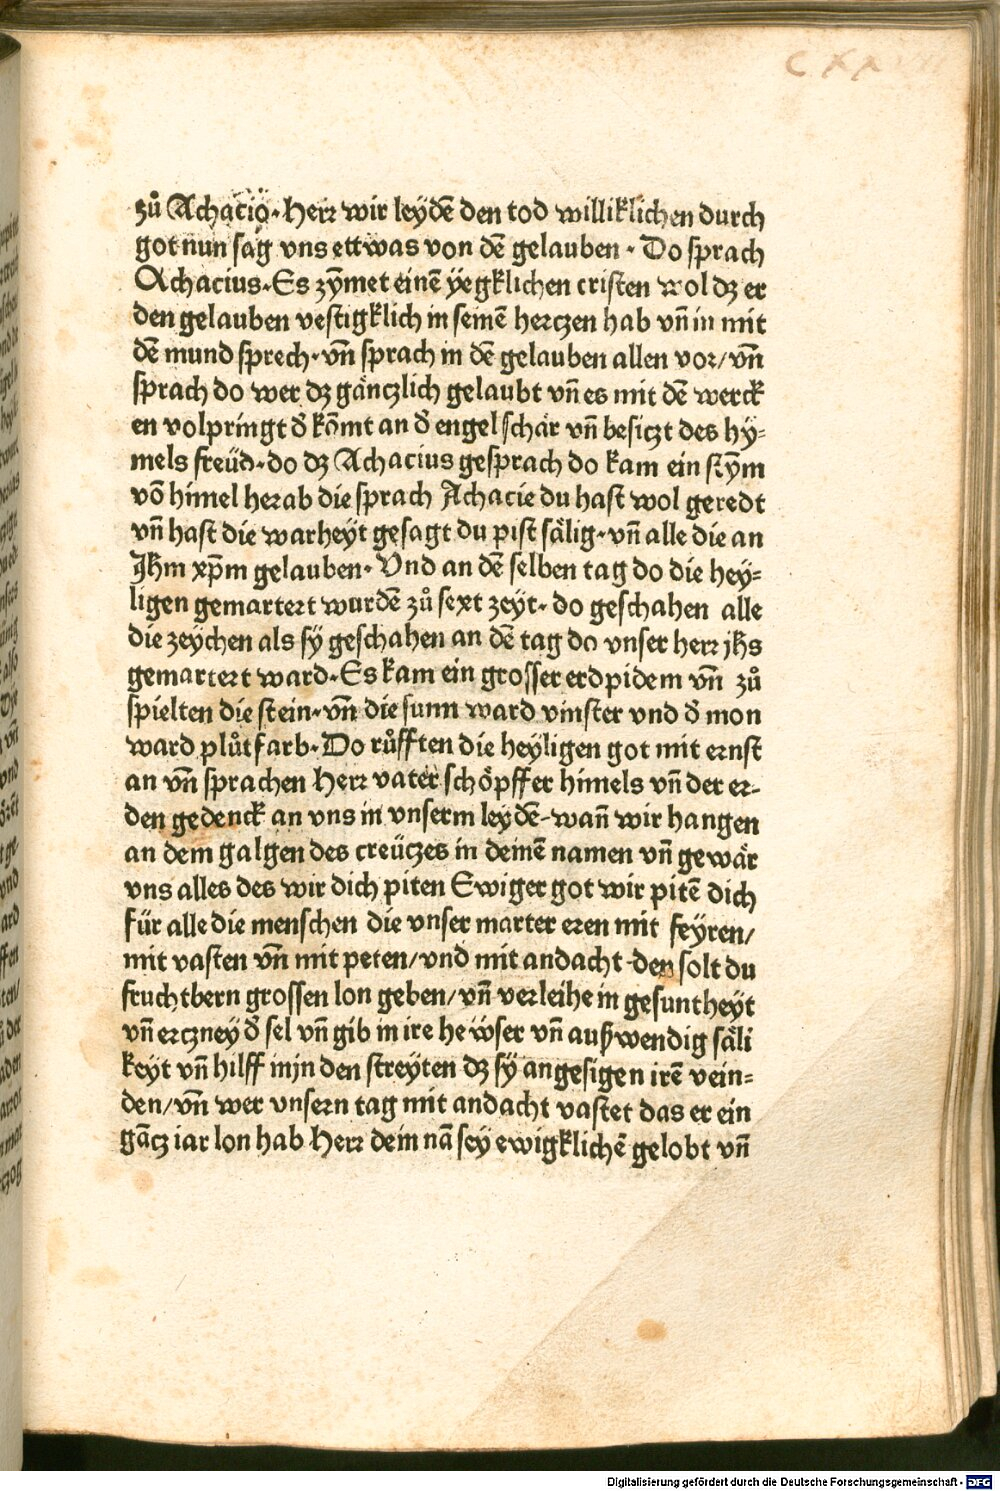 zů Achacio. Herr wir leydē den tod williklichen durch
got nun sag vns ettwas von dē gelauben. Do sprach
Achacius. Es zÿmet einē ÿegklichen cristen wol dz er
den gelauben vestigklich in seinē hertzen hab vñ in mit
dē mund sprech. vñ sprach in dē gelauben allen vor/ vñ
sprach do wer dz gäntzlich gelaubt vñ es mit dē werck
en volpringt d̕ kōmt an d̕ engel schar vñ besiczt des hÿ⸗
mels freüd. do dz Achacius gesprach do kam ein stÿm
vō himel herab die sprach Achacie du hast wol geredt
vñ hast die warheyt gesagt du pist sälig. vñ alle die an
Jhm xp̄m gelauben. Vnd an dē selben tag do die hey⸗
ligen gemartert wurdē zů sext zeyt. do geschahen alle
die zeychen als sÿ geschahen an dē tag do vnser herr jhs
gemartert ward. Es kam ein grosser erdpidem vñ zů
spielten die stein. vñ die sunn ward vinster vnd d̕ mon
ward plůtfarb. Do růfften die heyligen got mit ernst
an vñ sprachen Herr vater schöpffer himels vñ der er⸗
den gedenck an vns in vnserm leydē. wañ wir hangen
an dem galgen des creüczes in deinē namen vñ gewär
vns alles des wir dich piten Ewiger got wir pitē dich
für alle die menschen die vnser marter eren mit feyren/
mit vasten vñ mit peten/ vnd mit andacht den solt du
fruchtbern grossen lon geben/ vñ verleihe in gesuntheyt
vñ erczney d̕ sel vñ gib in ire heẅser vñ außwendig säli
keyt vñ hilff in in den streyten dz sÿ angesigen irē vein⸗
den/ vñ wer vnsern tag mit andacht vastet das er ein
gācz iar lon hab Herr dein nā sey ewigklichē gelobt vñ
Digitalisierung gefördert durch die Deutsche Forschungsgemeinschaft - DFG